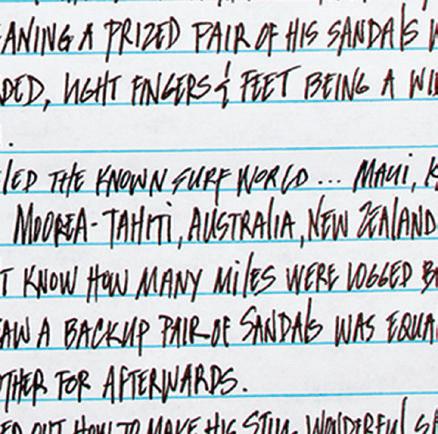 ANING A PRIZED PAIR OF HIS SANDALS W
DED, LIGHT FINGERS & FEET BEING A WI
.
LED THE KNOWN SURF WORLD ... MAUI, K
MOOREA-TAHITI, AUSTRALIA, NEW ZEALAND
T KNOW HOW MANY MILES WERE LOGGED B
AW A BACKUP PAIR OF SANDALS WAS EQUA
OTHER FOR AFTERWARDS.
ED OUT HOW TO MAKE HIS STILL WONDERFUL S